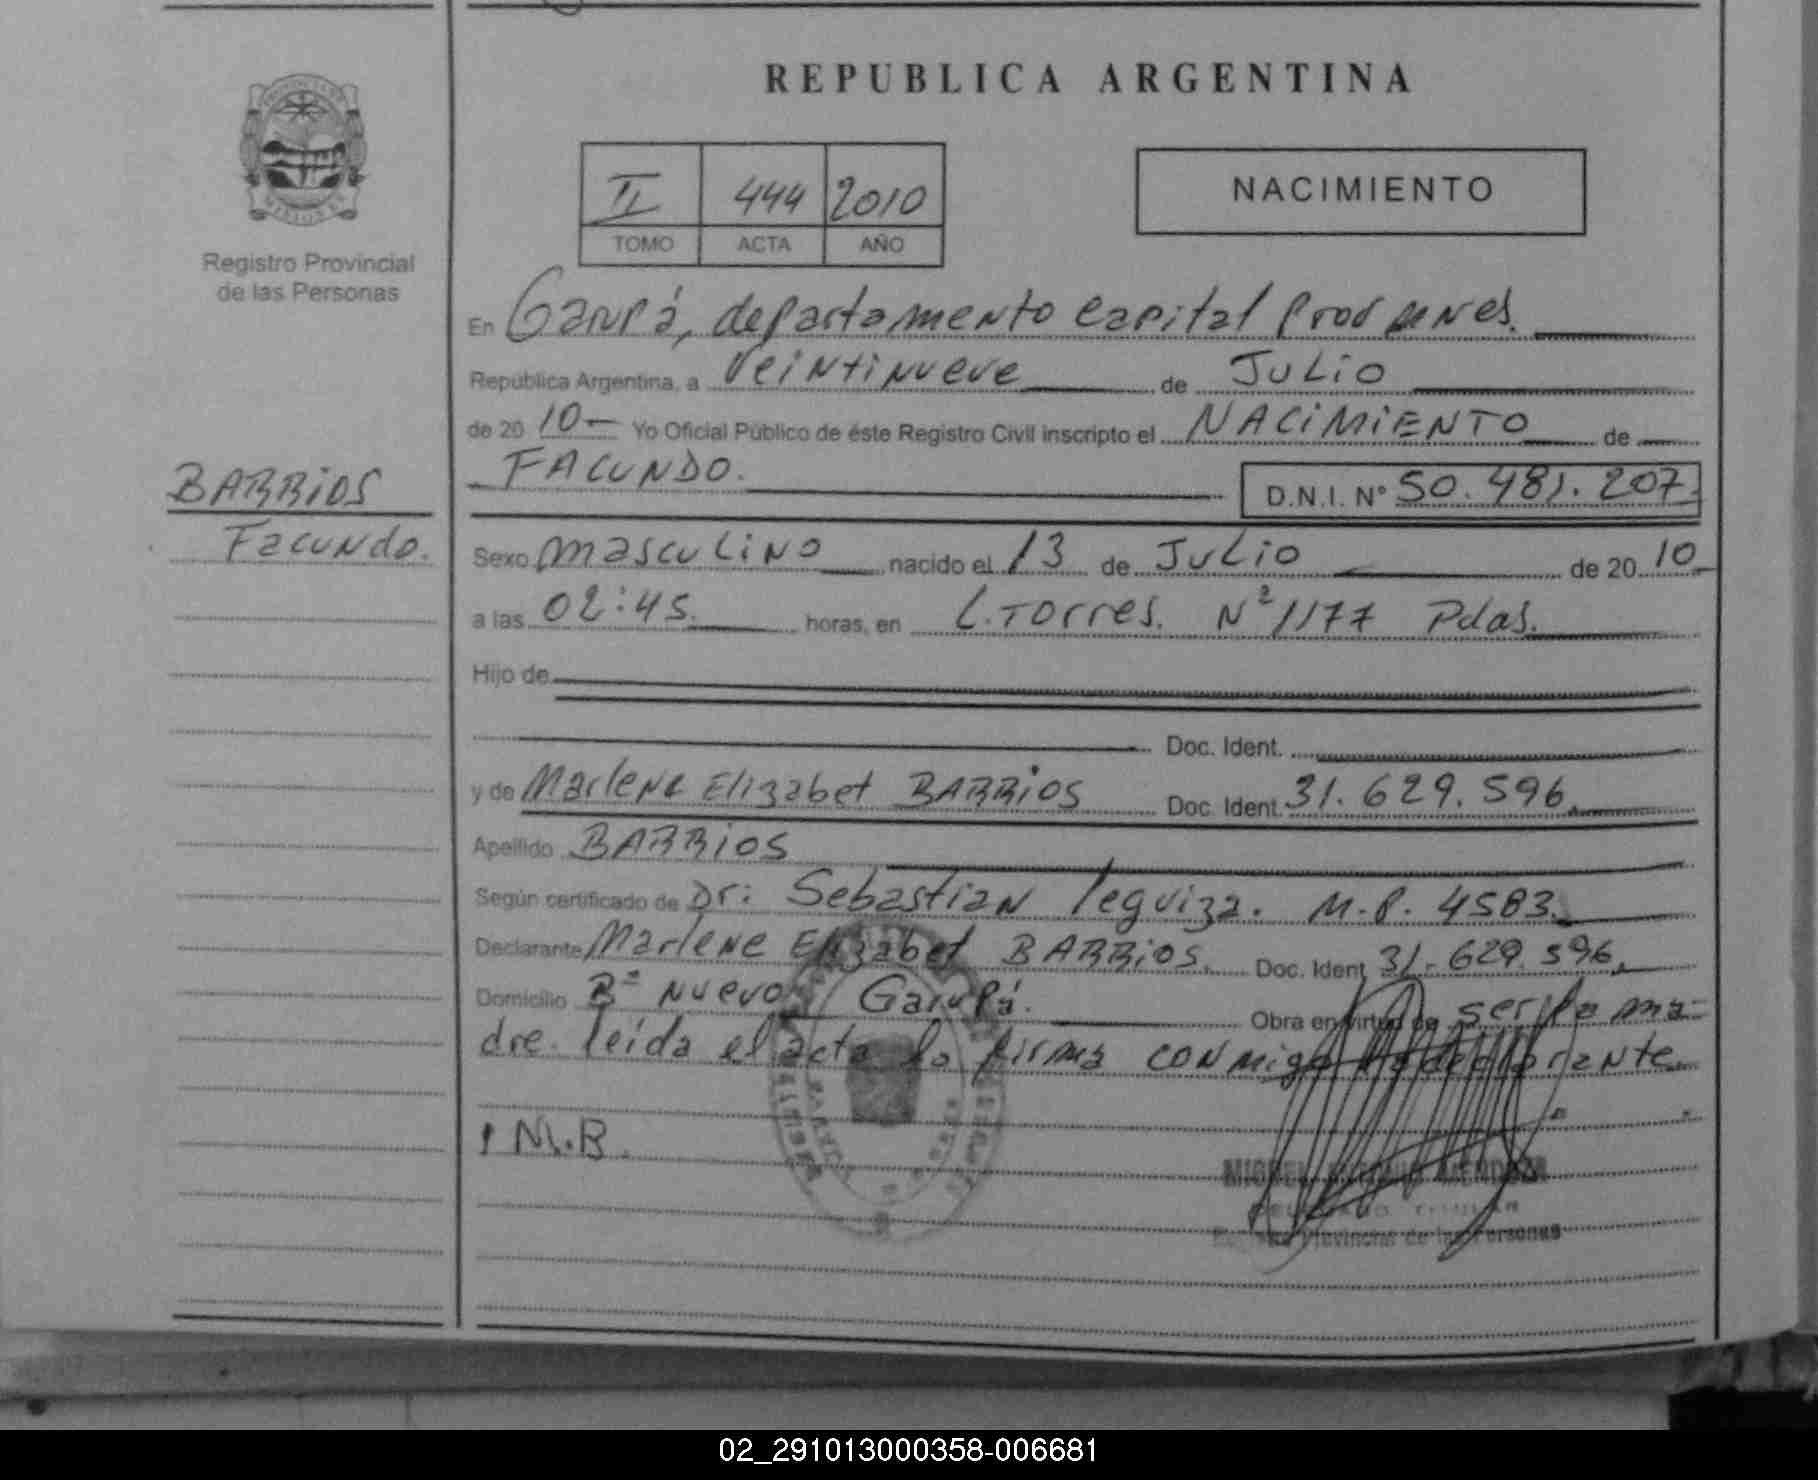 REPUBLICA ARGENTINA
PROVINCIA DE
MISIONES
Registro Provincial
de las Personas
II 444 2010
TOMO ACTA AÑO
NACIMIENTO
En Garupá, departamento Capital
República Argentina, a Veintinueve de Julio
de 20 10- Yo Oficial Público de éste Registro Civil inscripto el NACIMIENTO de
FACUNDO. D.N.I. Nº 50.481.207.
BARRIOS
Facundo.
Sexo masculino nacido el 13 de Julio de 20 10
a las 02:45. horas, en L. Torres. Nº 1177 Pdas.
Hijo de
Doc. Ident.
y de Marlene Elizabet BARRIOS Doc. Ident. 31.629.596.
Apellido BARRIOS
Según certificado de Dr: Sebastian Leguiza. M.P. 4583.
Declarante Marlene Elizabet BARRIOS. Doc. Ident. 31.629.596.
Domicilio Bº Nuevo Garupá. Obra en virtud de ser la ma-
dre. leída el acta la firma conmigo la declarante.
M.B.
MIGUEL ANTONIO MENDOZA
DELEGADO TITULAR
Provincial de las Personas
02_291013000358-006681